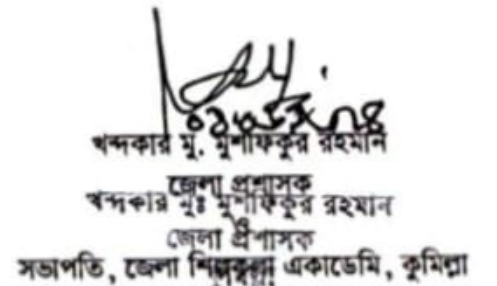 খন্দকার মু. মুশফিকুর রহমান
জেলা প্রশাসক
খন্দকার মুঃ মুশফিকুর রহমান
ও
জেলা প্রশাসক
সভাপতি, জেলা শিল্পকলা একাডেমি, কুমিল্লা